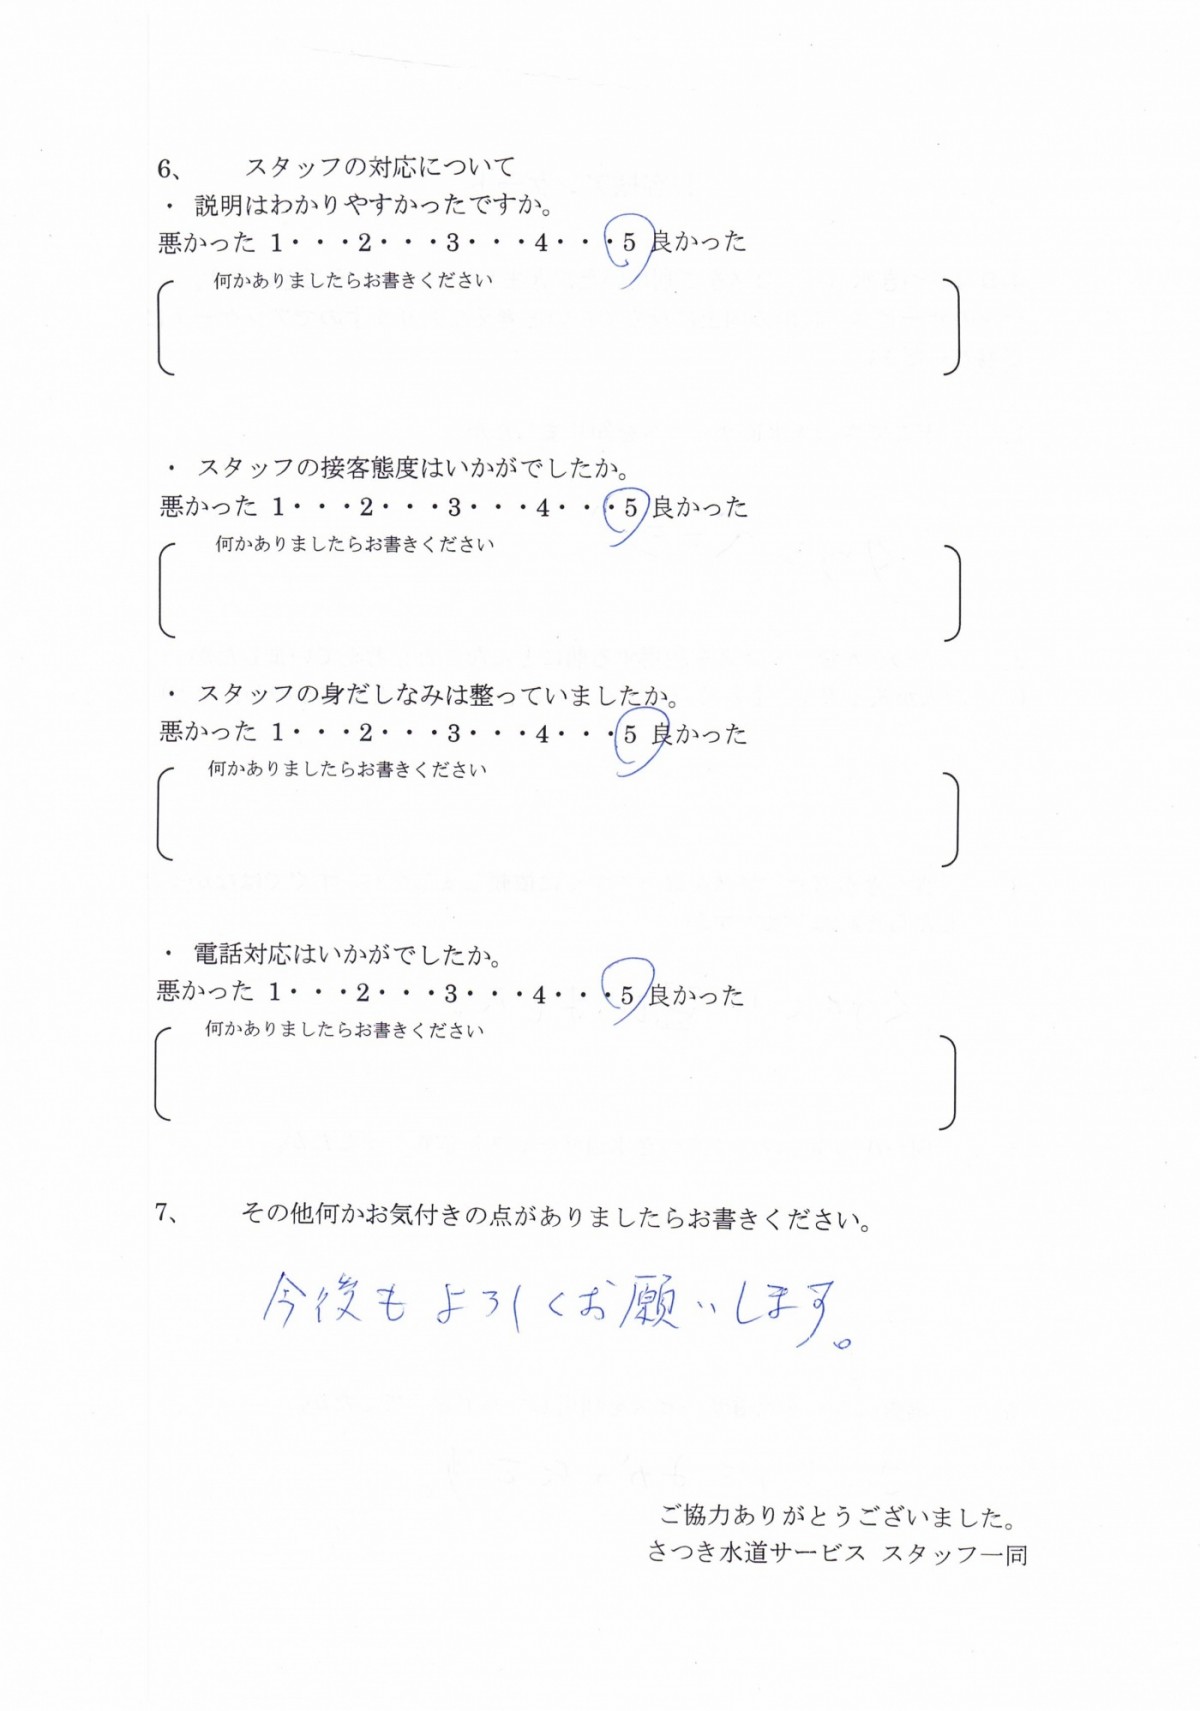 6、 スタッフの対応について
・ 説明はわかりやすかったですか。
悪かった 1・・・2・・・3・・・4・・・5 良かった
何かありましたらお書きください
・ スタッフの接客態度はいかがでしたか。
悪かった 1・・・2・・・3・・・4・・・5 良かった
何かありましたらお書きください
・ スタッフの身だしなみは整っていましたか。
悪かった 1・・・2・・・3・・・4・・・5 良かった
何かありましたらお書きください
・ 電話対応はいかがでしたか。
悪かった 1・・・2・・・3・・・4・・・5 良かった
何かありましたらお書きください
7、 その他何かお気付きの点がありましたらお書きください。
今後もよろしくお願いします。
ご協力ありがとうございました。
さつき水道サービス スタッフ一同